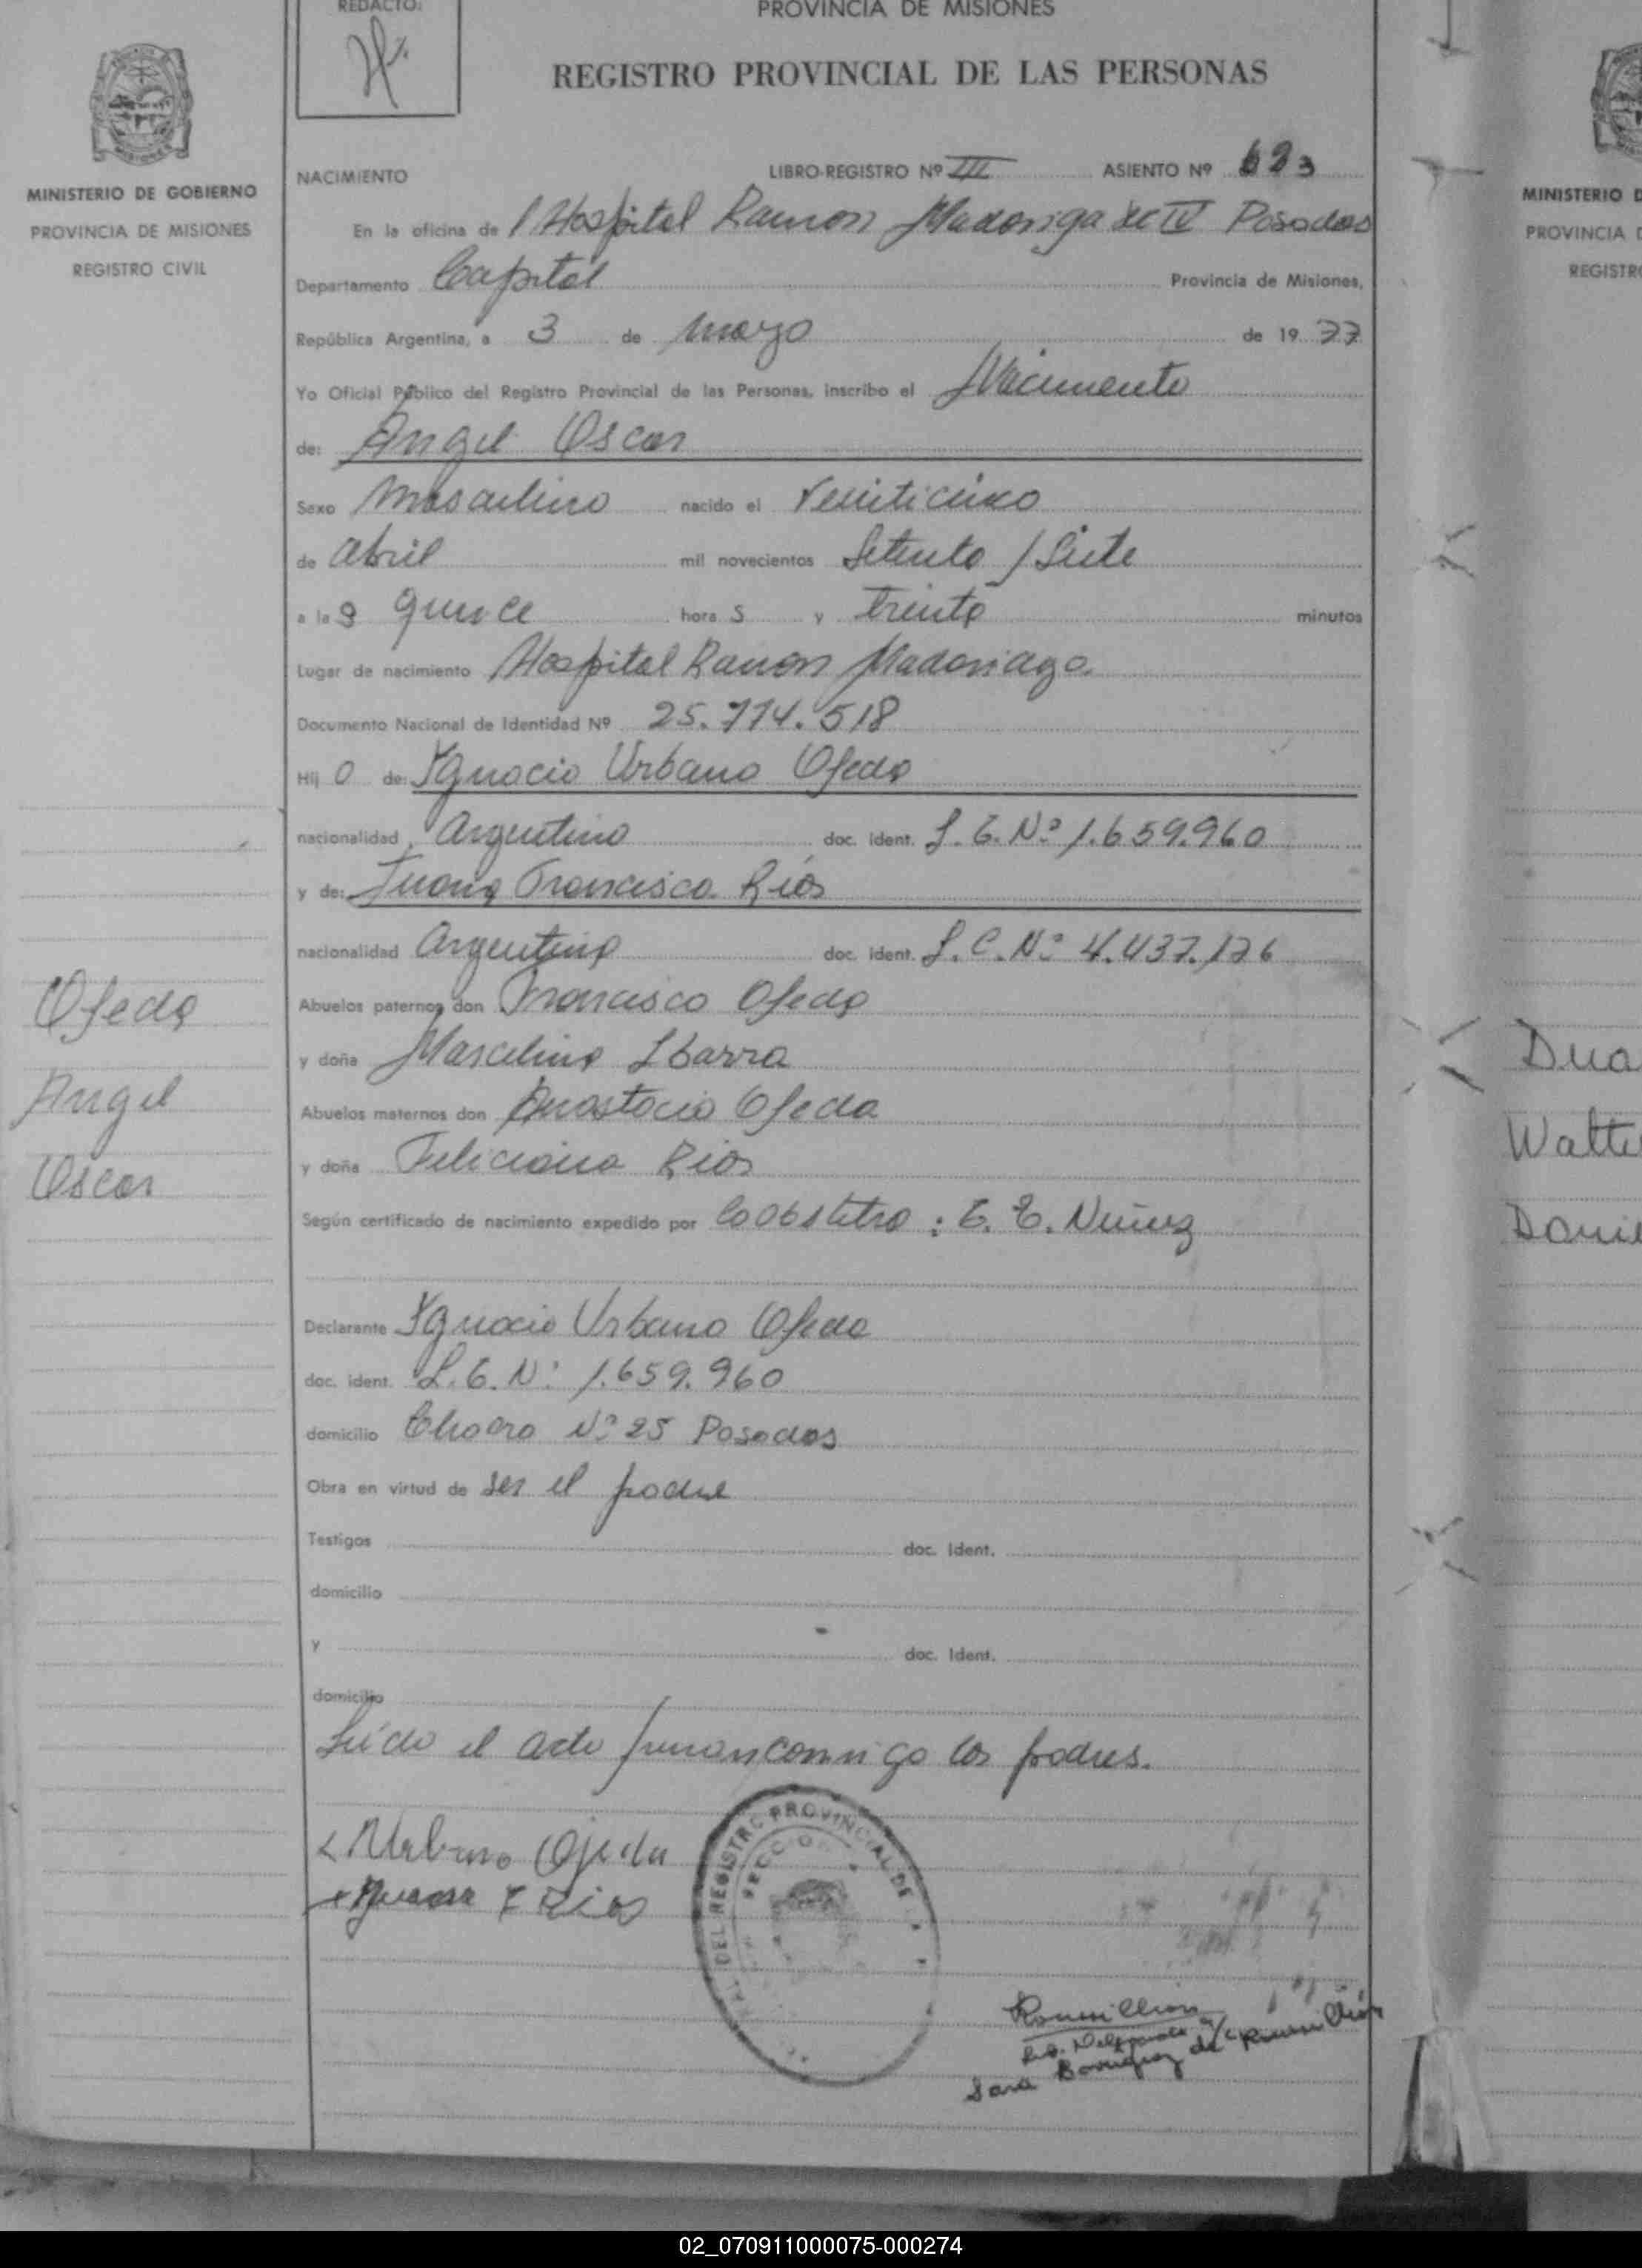 REDACTO:
PROVINCIA DE MISIONES
REGISTRO PROVINCIAL DE LAS PERSONAS
MINISTERIO DE GOBIERNO
PROVINCIA DE MISIONES
REGISTRO CIVIL
NACIMIENTO LIBRO-REGISTRO Nº III ASIENTO Nº 623
En la oficina de l Hospital Ramon Madariaga Sec IV Posadas
Departamento Capital Provincia de Misiones,
República Argentina, a 3 de mayo de 19 77
Yo Oficial Público del Registro Provincial de las Personas, inscribo el Nacimiento
de: Angel Oscar
Sexo Masculino nacido el Veinticinco
de abril mil novecientos Setenta / Siete
a la s quince hora s y treinta minutos
Lugar de nacimiento Hospital Ramon Madariaga
Documento Nacional de Identidad Nº 25.774.518
Hij o de: Ygnacio Urbano Ojeda
nacionalidad Argentino doc. ident. L.E.Nº 1.659.960
y de: Juana Francisca Rios
nacionalidad Argentina doc. ident. L.C.Nº 4.437.176
Abuelos paternos don Francisco Ojeda
y doña Marcelina Ibarra
Abuelos maternos don Anastacio Ojeda
y doña Feliciana Rios
Según certificado de nacimiento expedido por la obstetra : E. E. Nuñez
Declarante Ygnacio Urbano Ojeda
doc. ident. L.E.Nº 1.659.960
domicilio Chacra Nº 25 Posadas
Obra en virtud de ser el padre
Testigos doc. ident.
domicilio
y doc. ident.
domicilio
Leído el acta firman conmigo los padres.
Urbano Ojeda
Juana F Rios
DEL REGISTRO PROVINCIAL DE
SECCION
Roussillion
Sara de Roussillion
Ojeda
Angel
Oscar
MINISTERIO D
PROVINCIA D
REGISTR
Dua
Walte
Danie
02_070911000075-000274